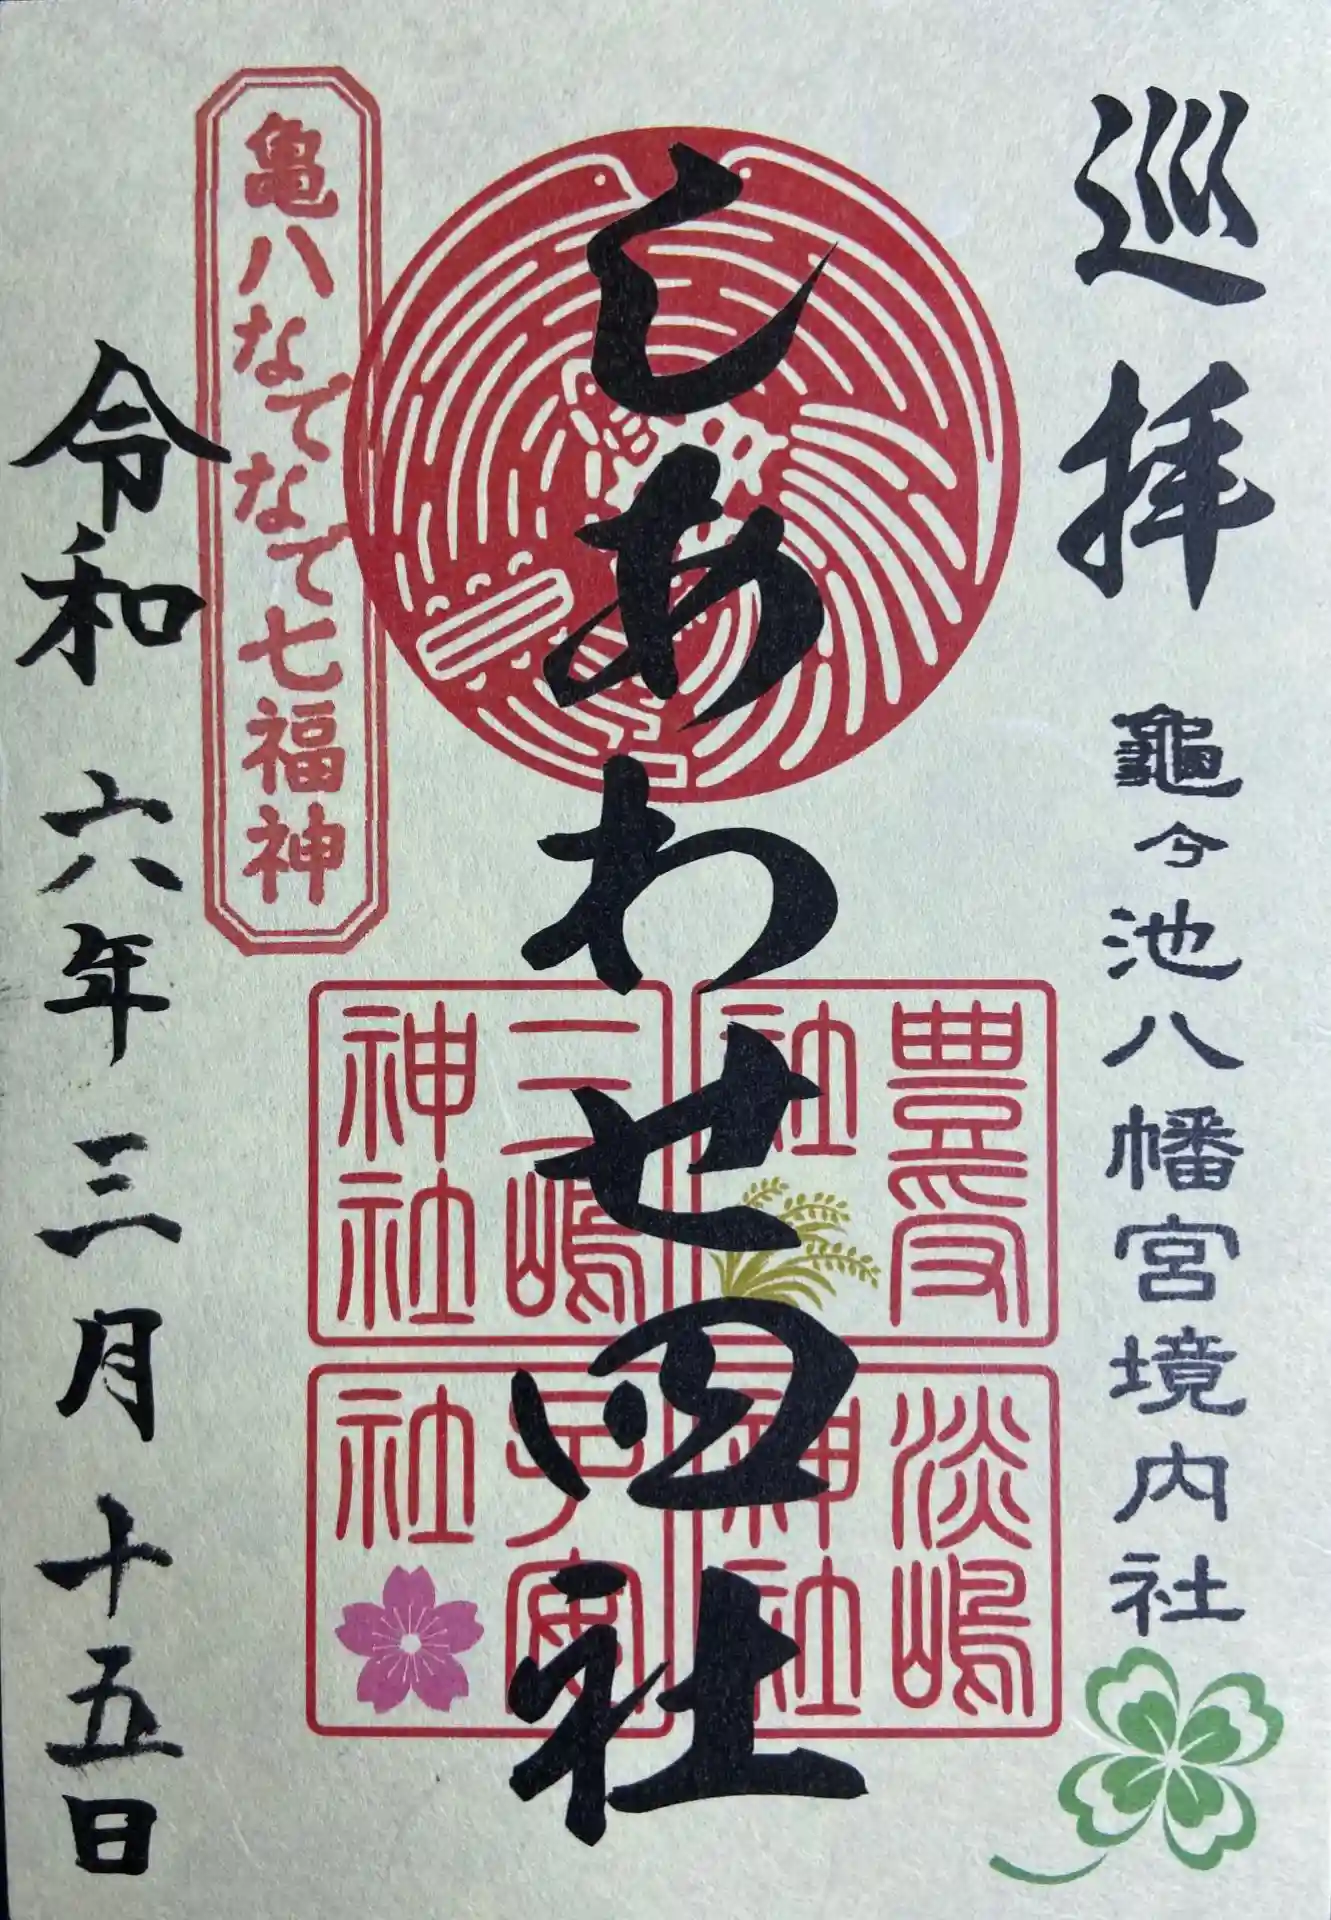 巡拝
龜今池八幡宮境内社
しあわせ四社
豊受社
二嶋神社
淡嶋神社
子安社
亀八なでなで七福神
令和六年三月十五日